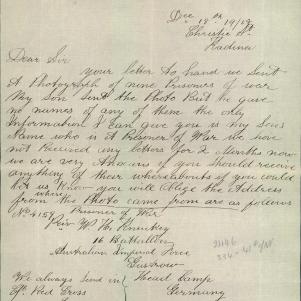 Dec 18th 19/17
Christie St
Kadina
Dear Sir
your letter to hand we sent
A Photograph of nine Prisoners of war
My Son sent the Photo But he give
no names of any of them the only
Information I can give you is my Sons
Name who is A Prisoner of War we have
not Received any letters for 2 Months now
we are very Anxious if you should receive
anything of their whereabouts if you could
let us know you will Oblige the Address
where
from the Photo came from are as follows
No 4159 Prisoner of War
Priv W H
16 Battallion
Australian Imperial Force
Gustrow
We always send in Head Camp
Red Cross Germany